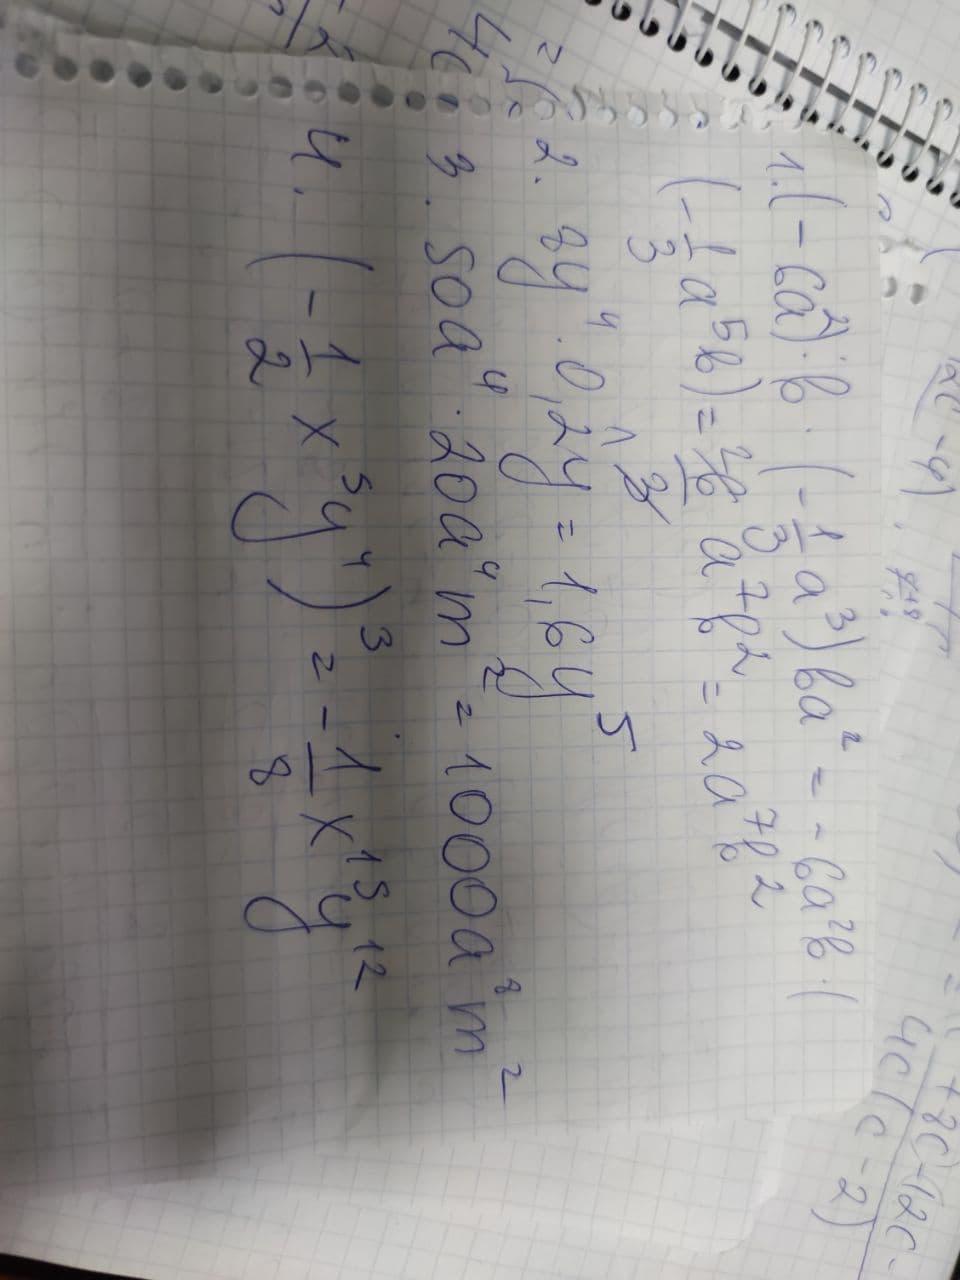 1. (-6a²)·b·(-1/3 a³)ba² = -6a²b·(
(-1/3 a⁵b) = 6/3 a⁷b² = 2a⁷b²
2. 8y⁴·0,2y = 1,6y⁵
3. 50a⁴·20a⁴m² = 1000a⁸m²
4. (-1/2 x⁵y⁴)³ = -1/8 x¹⁵y¹²
4c(c-2)